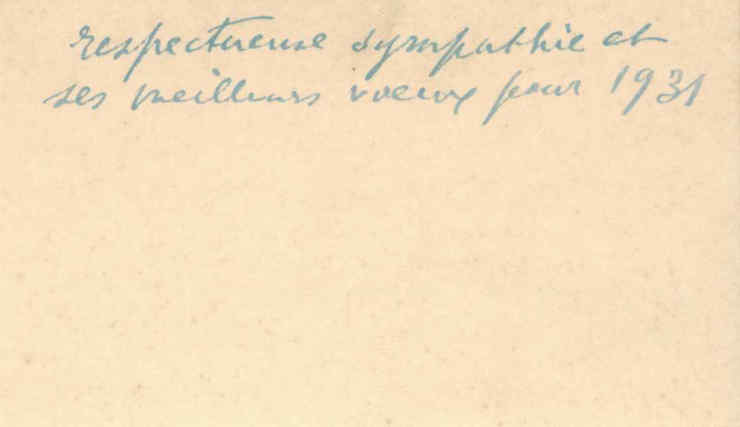 respectueuse sympathie et
ses meilleurs voeux pour 1931